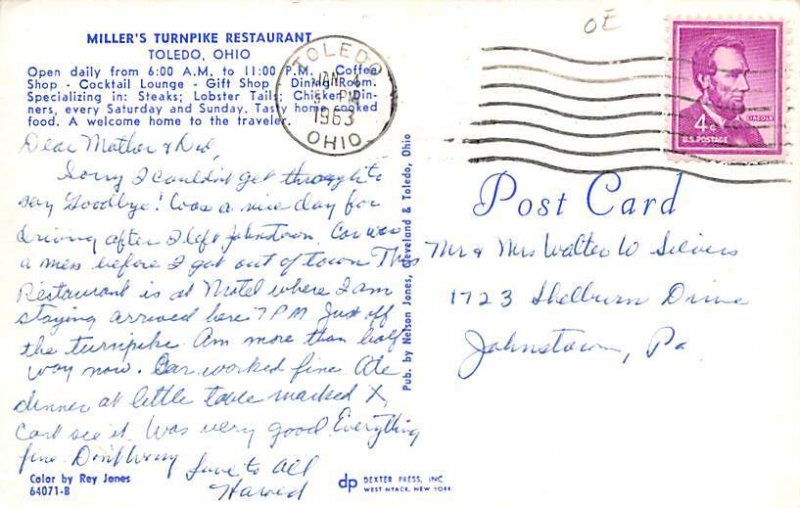 MILLER'S TURNPIKE RESTAURANT
TOLEDO, OHIO
Open daily from 6:00 A.M. to 11:00 P.M. Coffee
Shop - Cocktail Lounge - Gift Shop - Dining Room.
Specializing in: Steaks; Lobster Tails; Chicken Din-
ners, every Saturday and Sunday. Tasty home cooked
food. A welcome home to the traveler.
Dear Mother & Dad,
Sorry I couldn't get through to
say Goodbye! Was a nice day for
driving after I left Johnstown. Car was
a mess before I got out of town This
Restaurant is at Motel where I am
staying arrived here 7 PM Just off
the turnpike. Am more than half
way now. Car worked fine Ate
dinner at little table marked X,
Cant see it. Was very good. Everything
fine. Don't Worry
Love to All
Color by Ray Jones
64071-B
Pub. by Nelson Jones, Cleveland & Toledo, Ohio
DEXTER PRESS, INC
WEST NYACK, NEW YORK
dp
OE
TOLEDO
JAN 4
PM
1963
OHIO
4¢
LINCOLN
U.S. POSTAGE
Post Card
Mr & Mrs Walter W Seivers
1723 Shelburn Drive
Johnstown, Pa